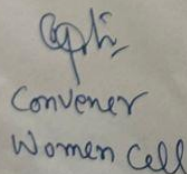 Convener
Women Cell